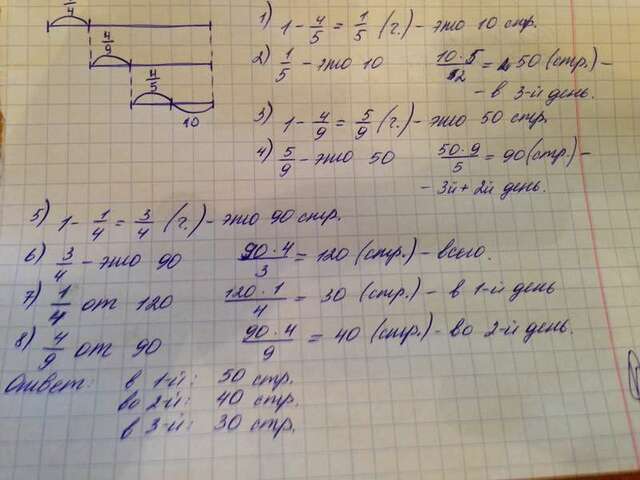 1/4
4/9
4/5
10
1) 1 - 4/5 = 1/5 (г.) - это 10 стр.
2) 1/5 - это 10   10·5/1 = 50 (стр.) -
- в 3-й день.
3) 1 - 4/9 = 5/9 (г.) - это 50 стр.
4) 5/9 - это 50   50·9/5 = 90 (стр) -
- 3й + 2й день.
5) 1 - 1/4 = 3/4 (г.) - это 90 стр.
6) 3/4 - это 90   90·4/3 = 120 (стр.) - всего.
7) 1/4 от 120   120·1/4 = 30 (стр.) - в 1-й день
8) 4/9 от 90   90·4/9 = 40 (стр.) - во 2-й день.
Ответ: в 1-й: 50 стр.
во 2-й: 40 стр.
в 3-й: 30 стр.